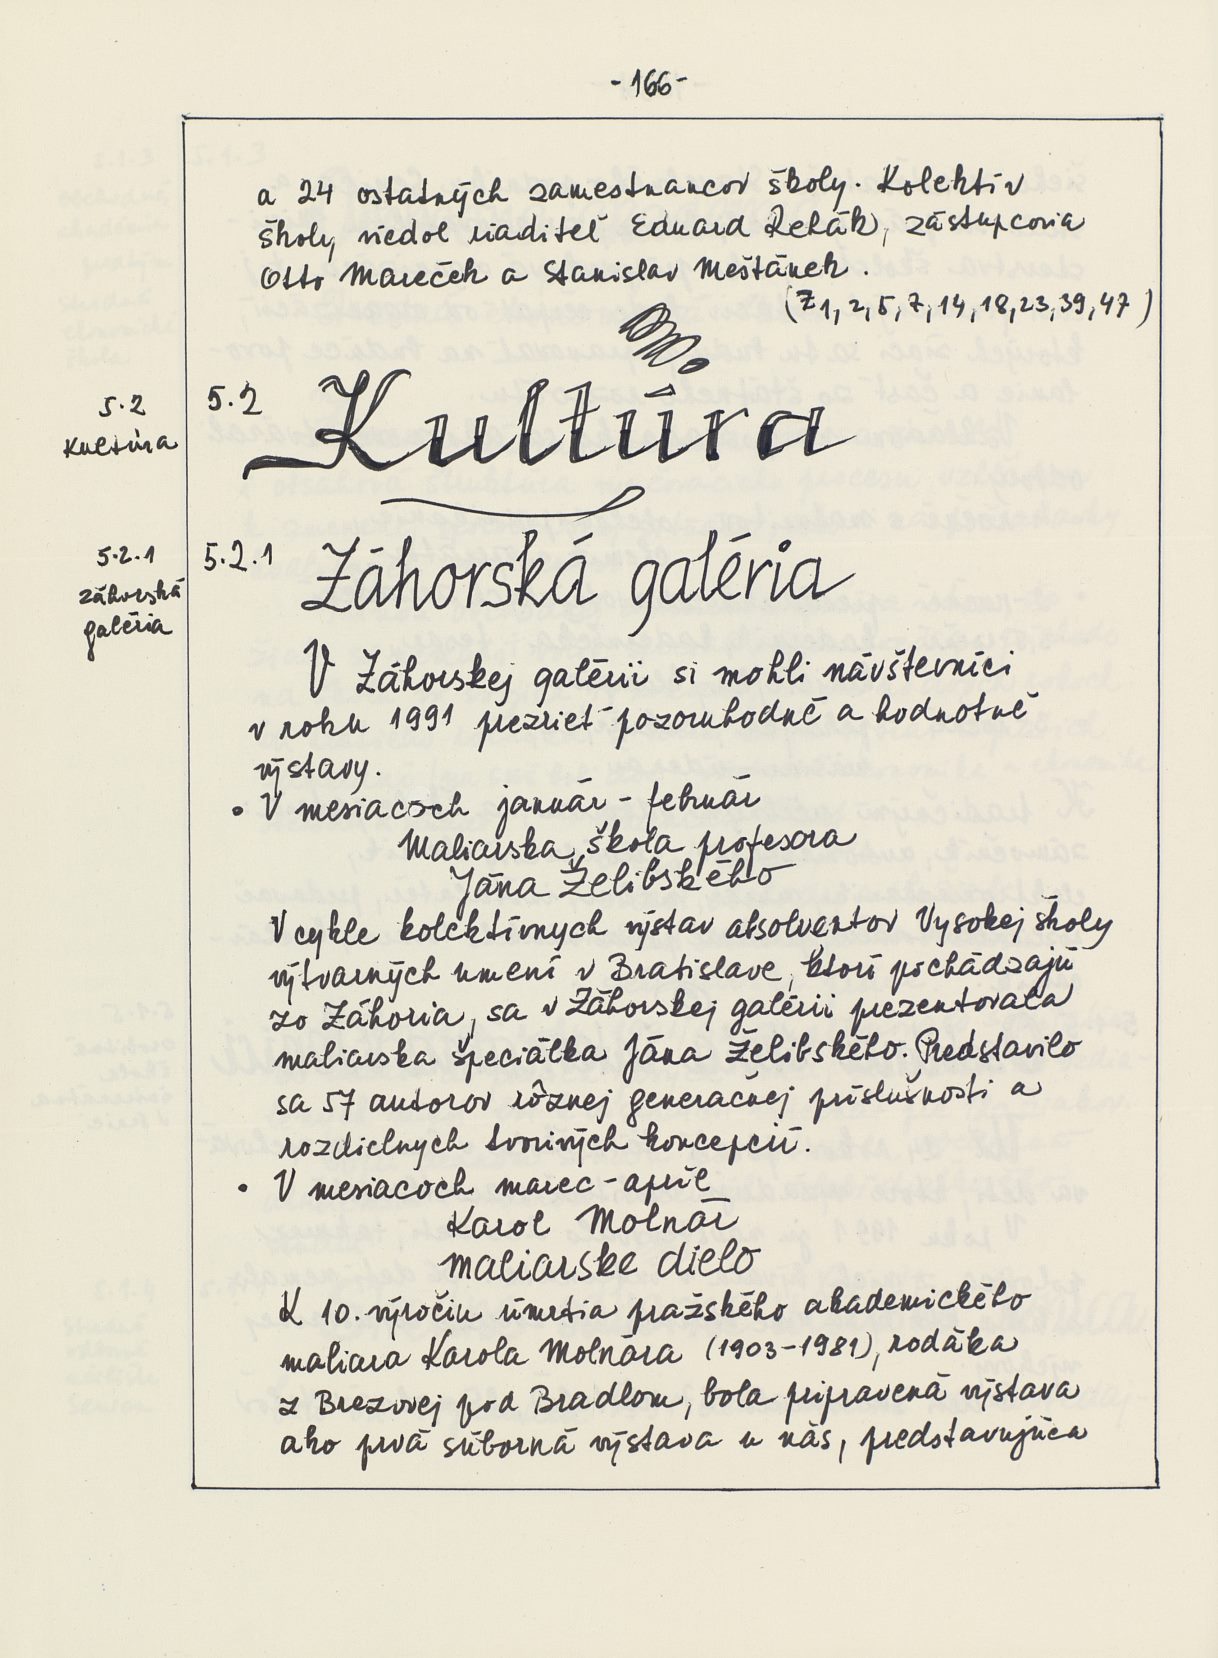 -166-
a 24 ostatných zamestnancov školy. Kolektív
školy viedol riaditeľ Eduard Rehák, zástupcovia
Otto Mareček a Stanislav Mešťánek.
(Z 1, 2, 5, 7, 14, 18, 23, 39, 47)
5.2
Kultúra
5.2 Kultúra
5.2.1
Záhorská
galéria
5.2.1 Záhorská galéria
V Záhorskej galérii si mohli návštevníci
v roku 1991 prezrieť pozoruhodné a hodnotné
výstavy.
• V mesiacoch január - február
Maliarska škola profesora
Jána Želibského
V cykle kolektívnych výstav absolventov Vysokej školy
výtvarných umení v Bratislave, ktorí pochádzajú
zo Záhoria, sa v Záhorskej galérii prezentovala
maliarska špeciálka Jána Želibského. Predstavilo
sa 57 autorov rôznej generačnej príslušnosti a
rozdielnych tvorivých koncepcií.
• V mesiacoch marec - apríl
Karol Molnár
maliarske dielo
K 10. výročiu úmrtia pražského akademického
maliara Karola Molnára (1903-1981), rodáka
z Brezovej pod Bradlom, bola pripravená výstava
ako prvá súborná výstava u nás, predstavujúca